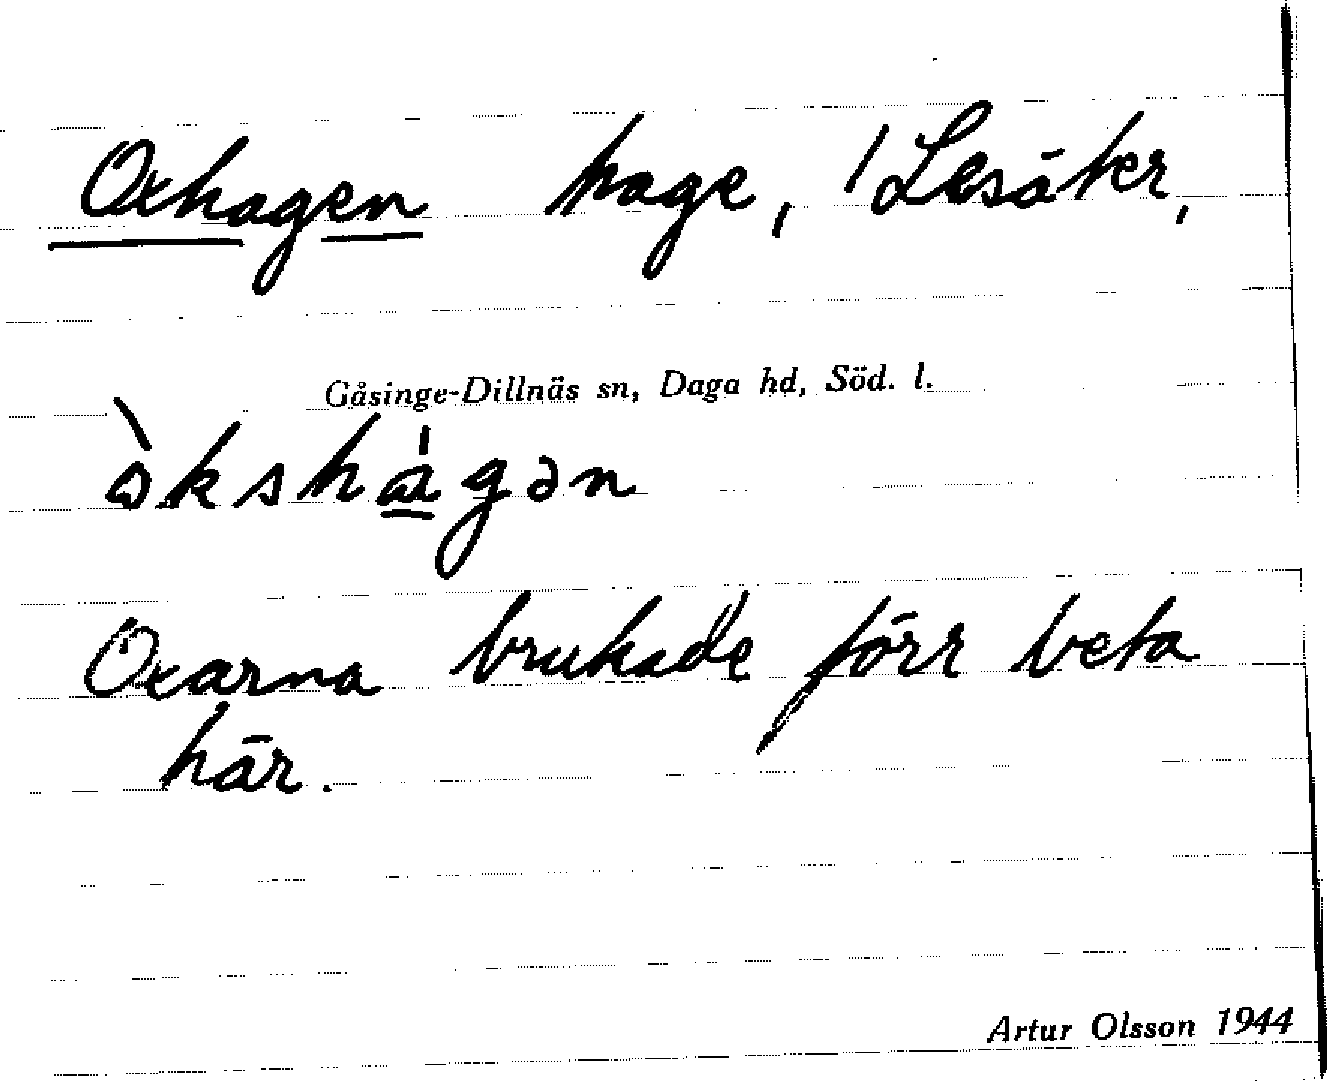 Oxhagen hage, / Lesäker,
Gåsinge-Dillnäs sn, Daga hd, Söd. l.
òkshágən
Oxarna brukade förr beta
här.
Artur Olsson 1944